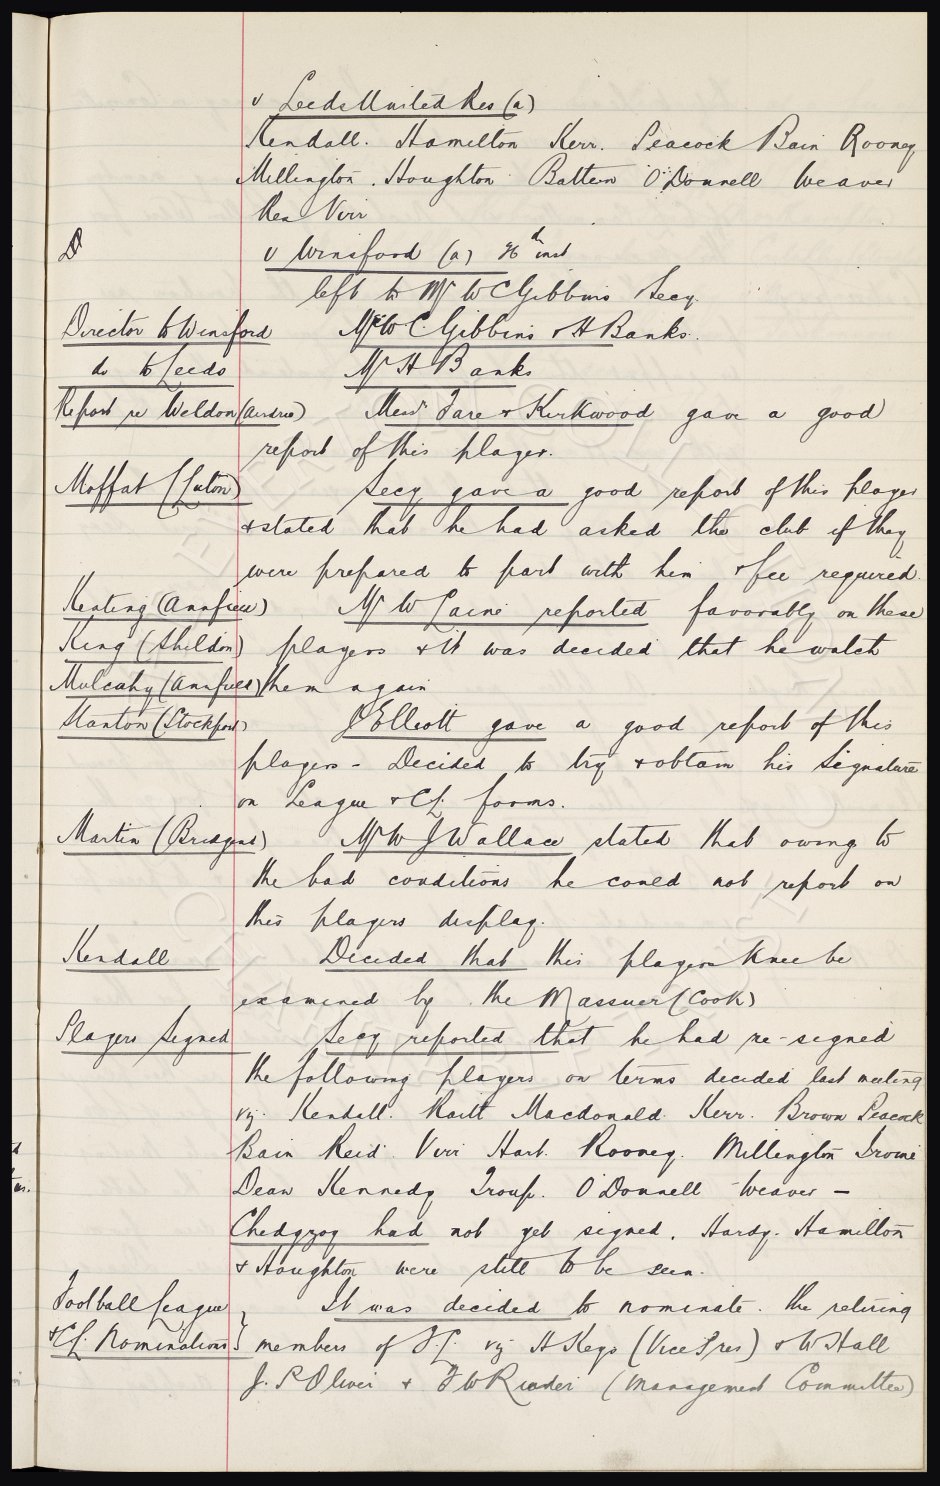 v Leeds United Res (a)
Kendall. Hamilton Kerr. Peacock Bain Rooney
Millington. Houghton Batten O'Donnell Weaver
Res Virr
D v Winsford (a) 26th inst
left to Mr W C Gibbins Secy.
Director to Winsford Mr W C. Gibbins & H Banks.
do to Leeds Mr H Banks
Report re Weldon (Airdrie) Messrs Fare & Kirkwood gave a good
report of this player.
Moffat (Luton) Secy gave a good report of this player
& stated that he had asked the club if they
were prepared to part with him & fee required.
Keating (Annfield) Mr W Laine reported favorably on these
King (Shildon) players & it was decided that he watch
Mulcahy (Annfield) them again
Stanton (Stockport) J Elliott gave a good report of this
players - Decided to try & obtain his signature
on League & CL. forms.
Martin (Bridgend) Mr W J Wallace stated that owing to
the bad conditions he could not report on
this players display.
Kendall Decided that this players knee be
examined by the Masseur (Cook)
Players Signed Secy reported that he had re-signed
the following players on terms decided last meeting
viz. Kendall. Raitt Macdonald. Kerr. Brown Peacock
Bain Reid. Virr Hart. Rooney. Millington Irvine
Dean Kennedy Troup. O'Donnell Weaver -
Chedgzoy had not yet signed. Hardy. Hamilton
& Houghton were still to be seen.
Football League It was decided to nominate. the retiring
& CL. Nominations } members of F.L. viz H Keys (Vice Pres) & W Hall
J. P Oliver & F W Rinder (Management Committee)